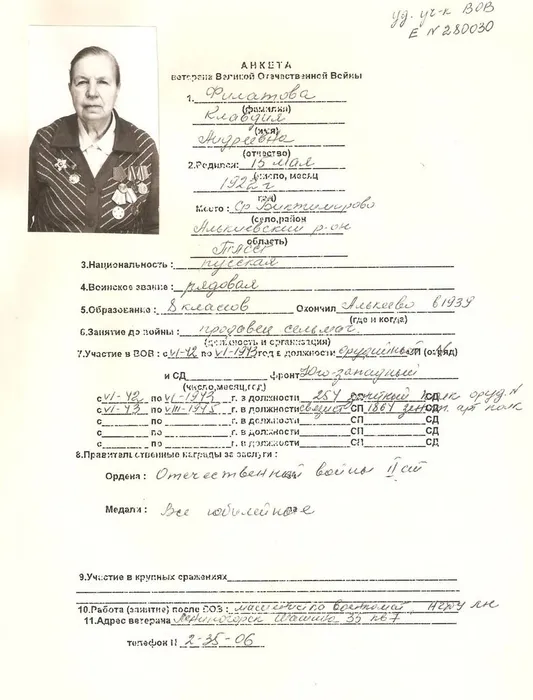 уд. уч-к ВОВ
Е № 280030
АНКЕТА
ветерана Великой Отечественной Войны
1. Филатова
(фамилия)
Клавдия
(имя)
Андреевна
(отчество)
2.Родился: 15 мая
(число, месяц
1922 г
год)
Место: Ср Биктимирово
(село,район
Алькиевский р-он
область)
ТАССР
3.Национальность: русская
4.Воинское звание: рядовая
5.Образование: 8 классов Окончил Алькеево в 1939
(где и когда)
6.Занятие до войны: продавец сельмаг.
(должность и организация)
7.Участие в ВОВ: с VI-42 по VI-1943 год в должности орудийный
и СД фронт Юго-западный
(число,месяц,год)
с VI-42 по VI-1943 г. в должности 254 зенитный полк оруд. N СД
с VI-43 по VIII-1945 г. в должности связист СП 1864 зенит. арт полк СД
с по г. в должности СП СД
с по г. в должности СП СД
с по г. в должности СП СД
8.Правительственные награды за заслуги:
Ордена: Отечественной войны II ст
Медали: Все юбилейное
9.Участие в крупных сражениях
10.Работа (занятие) после ВОВ: машинистка военкомат НГДУ
11.Адрес ветерана Лениногорск 35 кв 7
телефон N 2-35-06